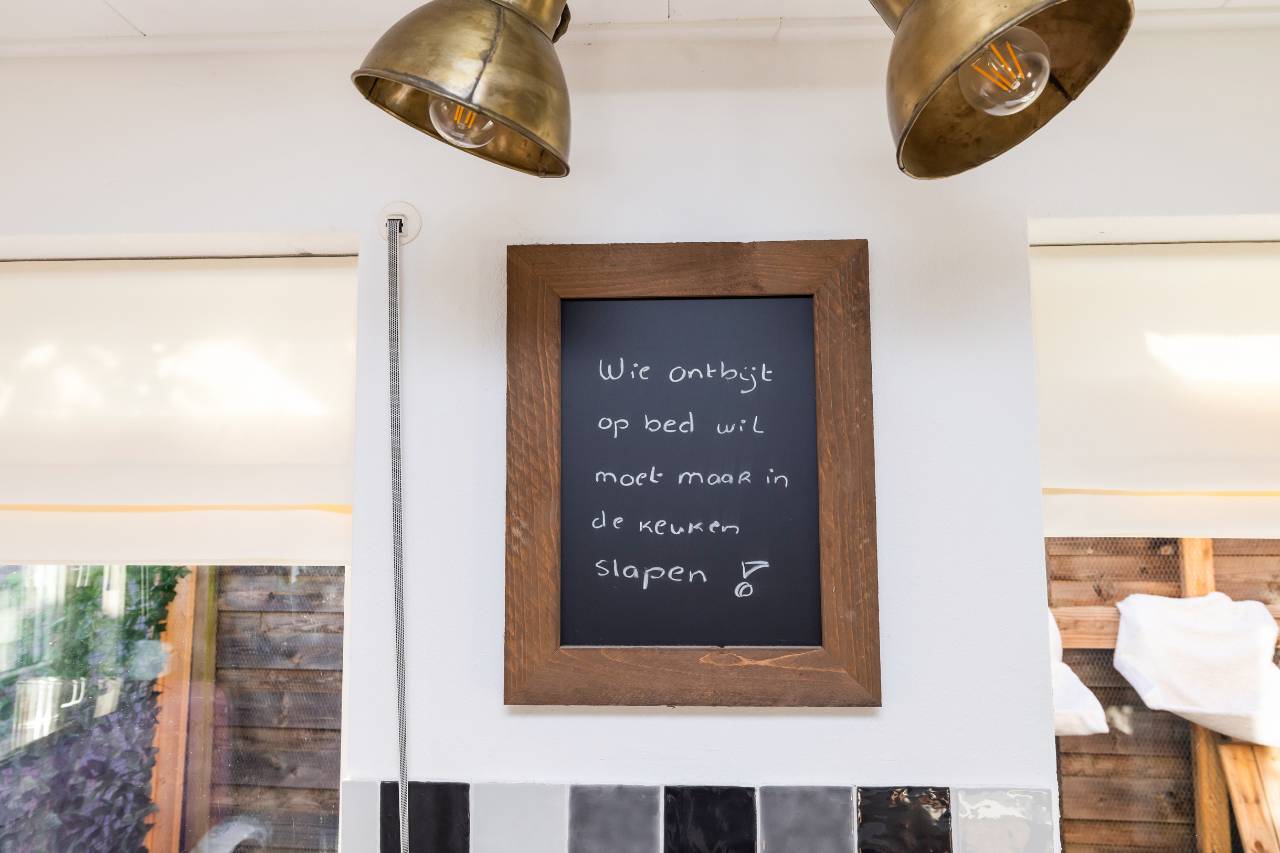 Wie ontbijt
op bed wil
moet maar in
de keuken
slapen !